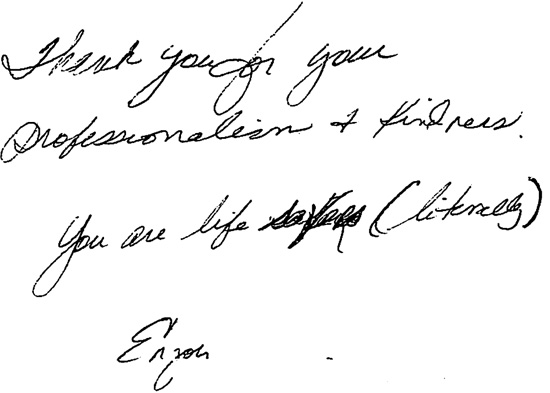 Thank you for your
professionalism & kindness.
You are life savers (literally)
Enjoy